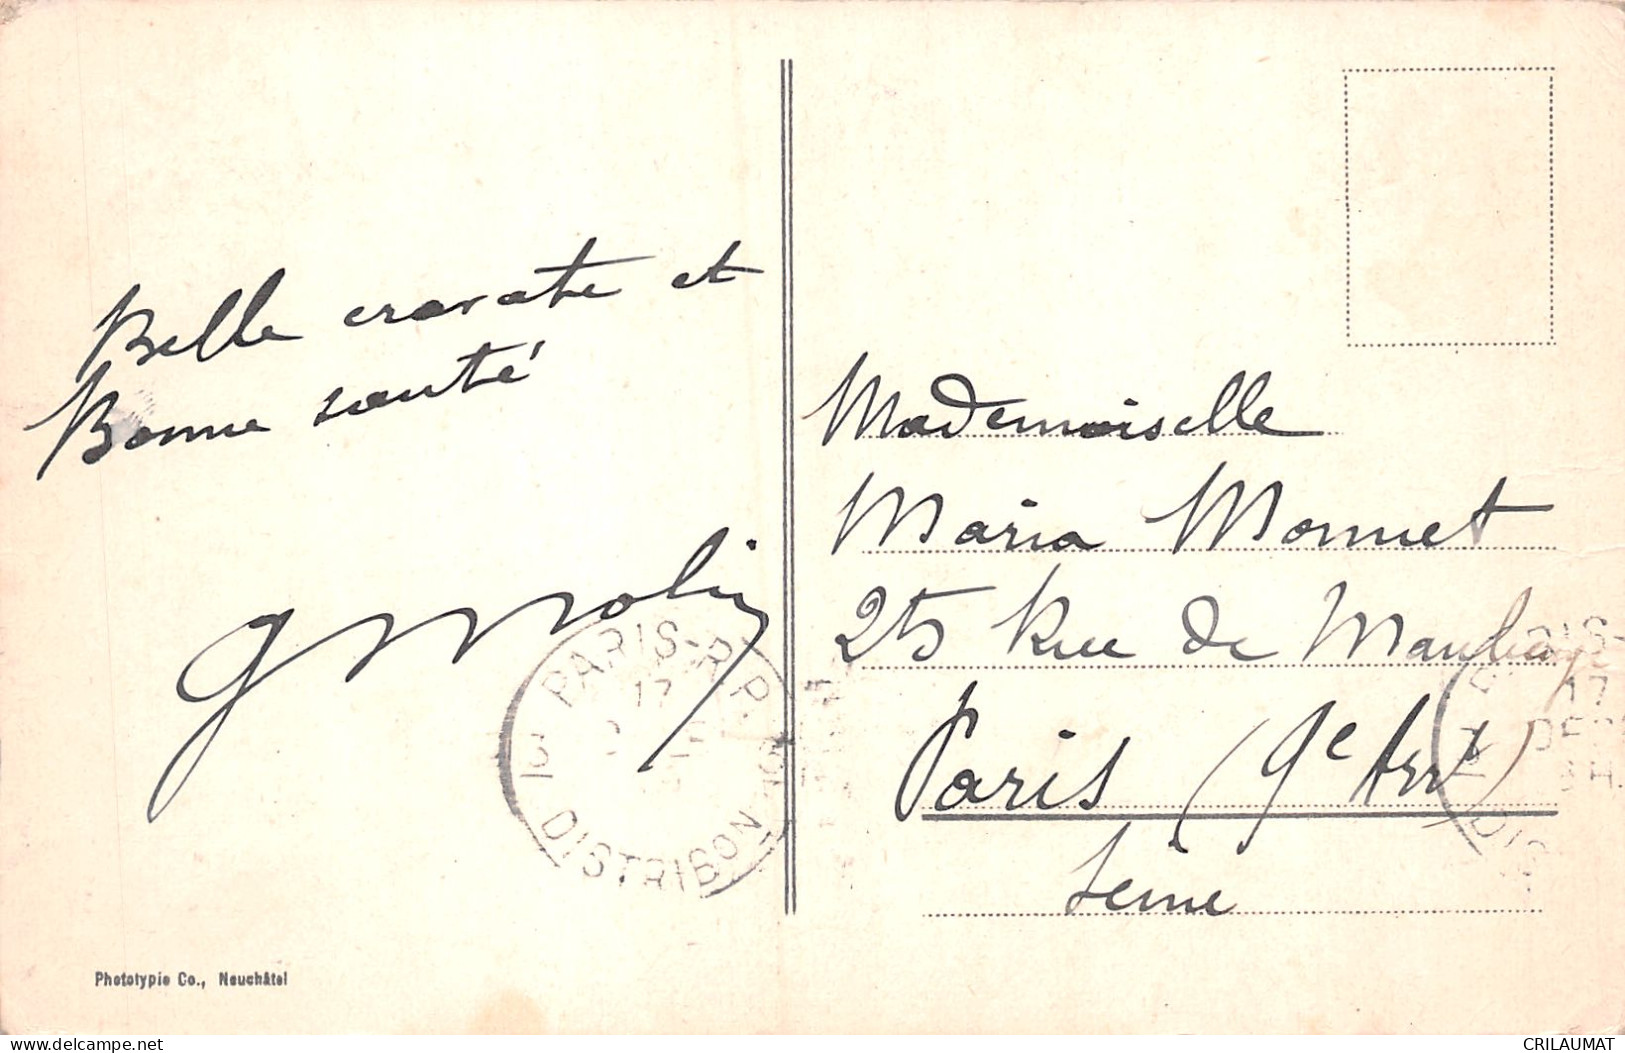 Belle cravate et
Bonne santé
Mademoiselle
Maria Monnet
25 Rue de Maubeuge
Paris (9e Arrt)
Seine
PARIS-R.P.
17
DISTRIBON
17
DEC
Phototypie Co., Neuchâtel
delcampe.net
CRILAUMAT